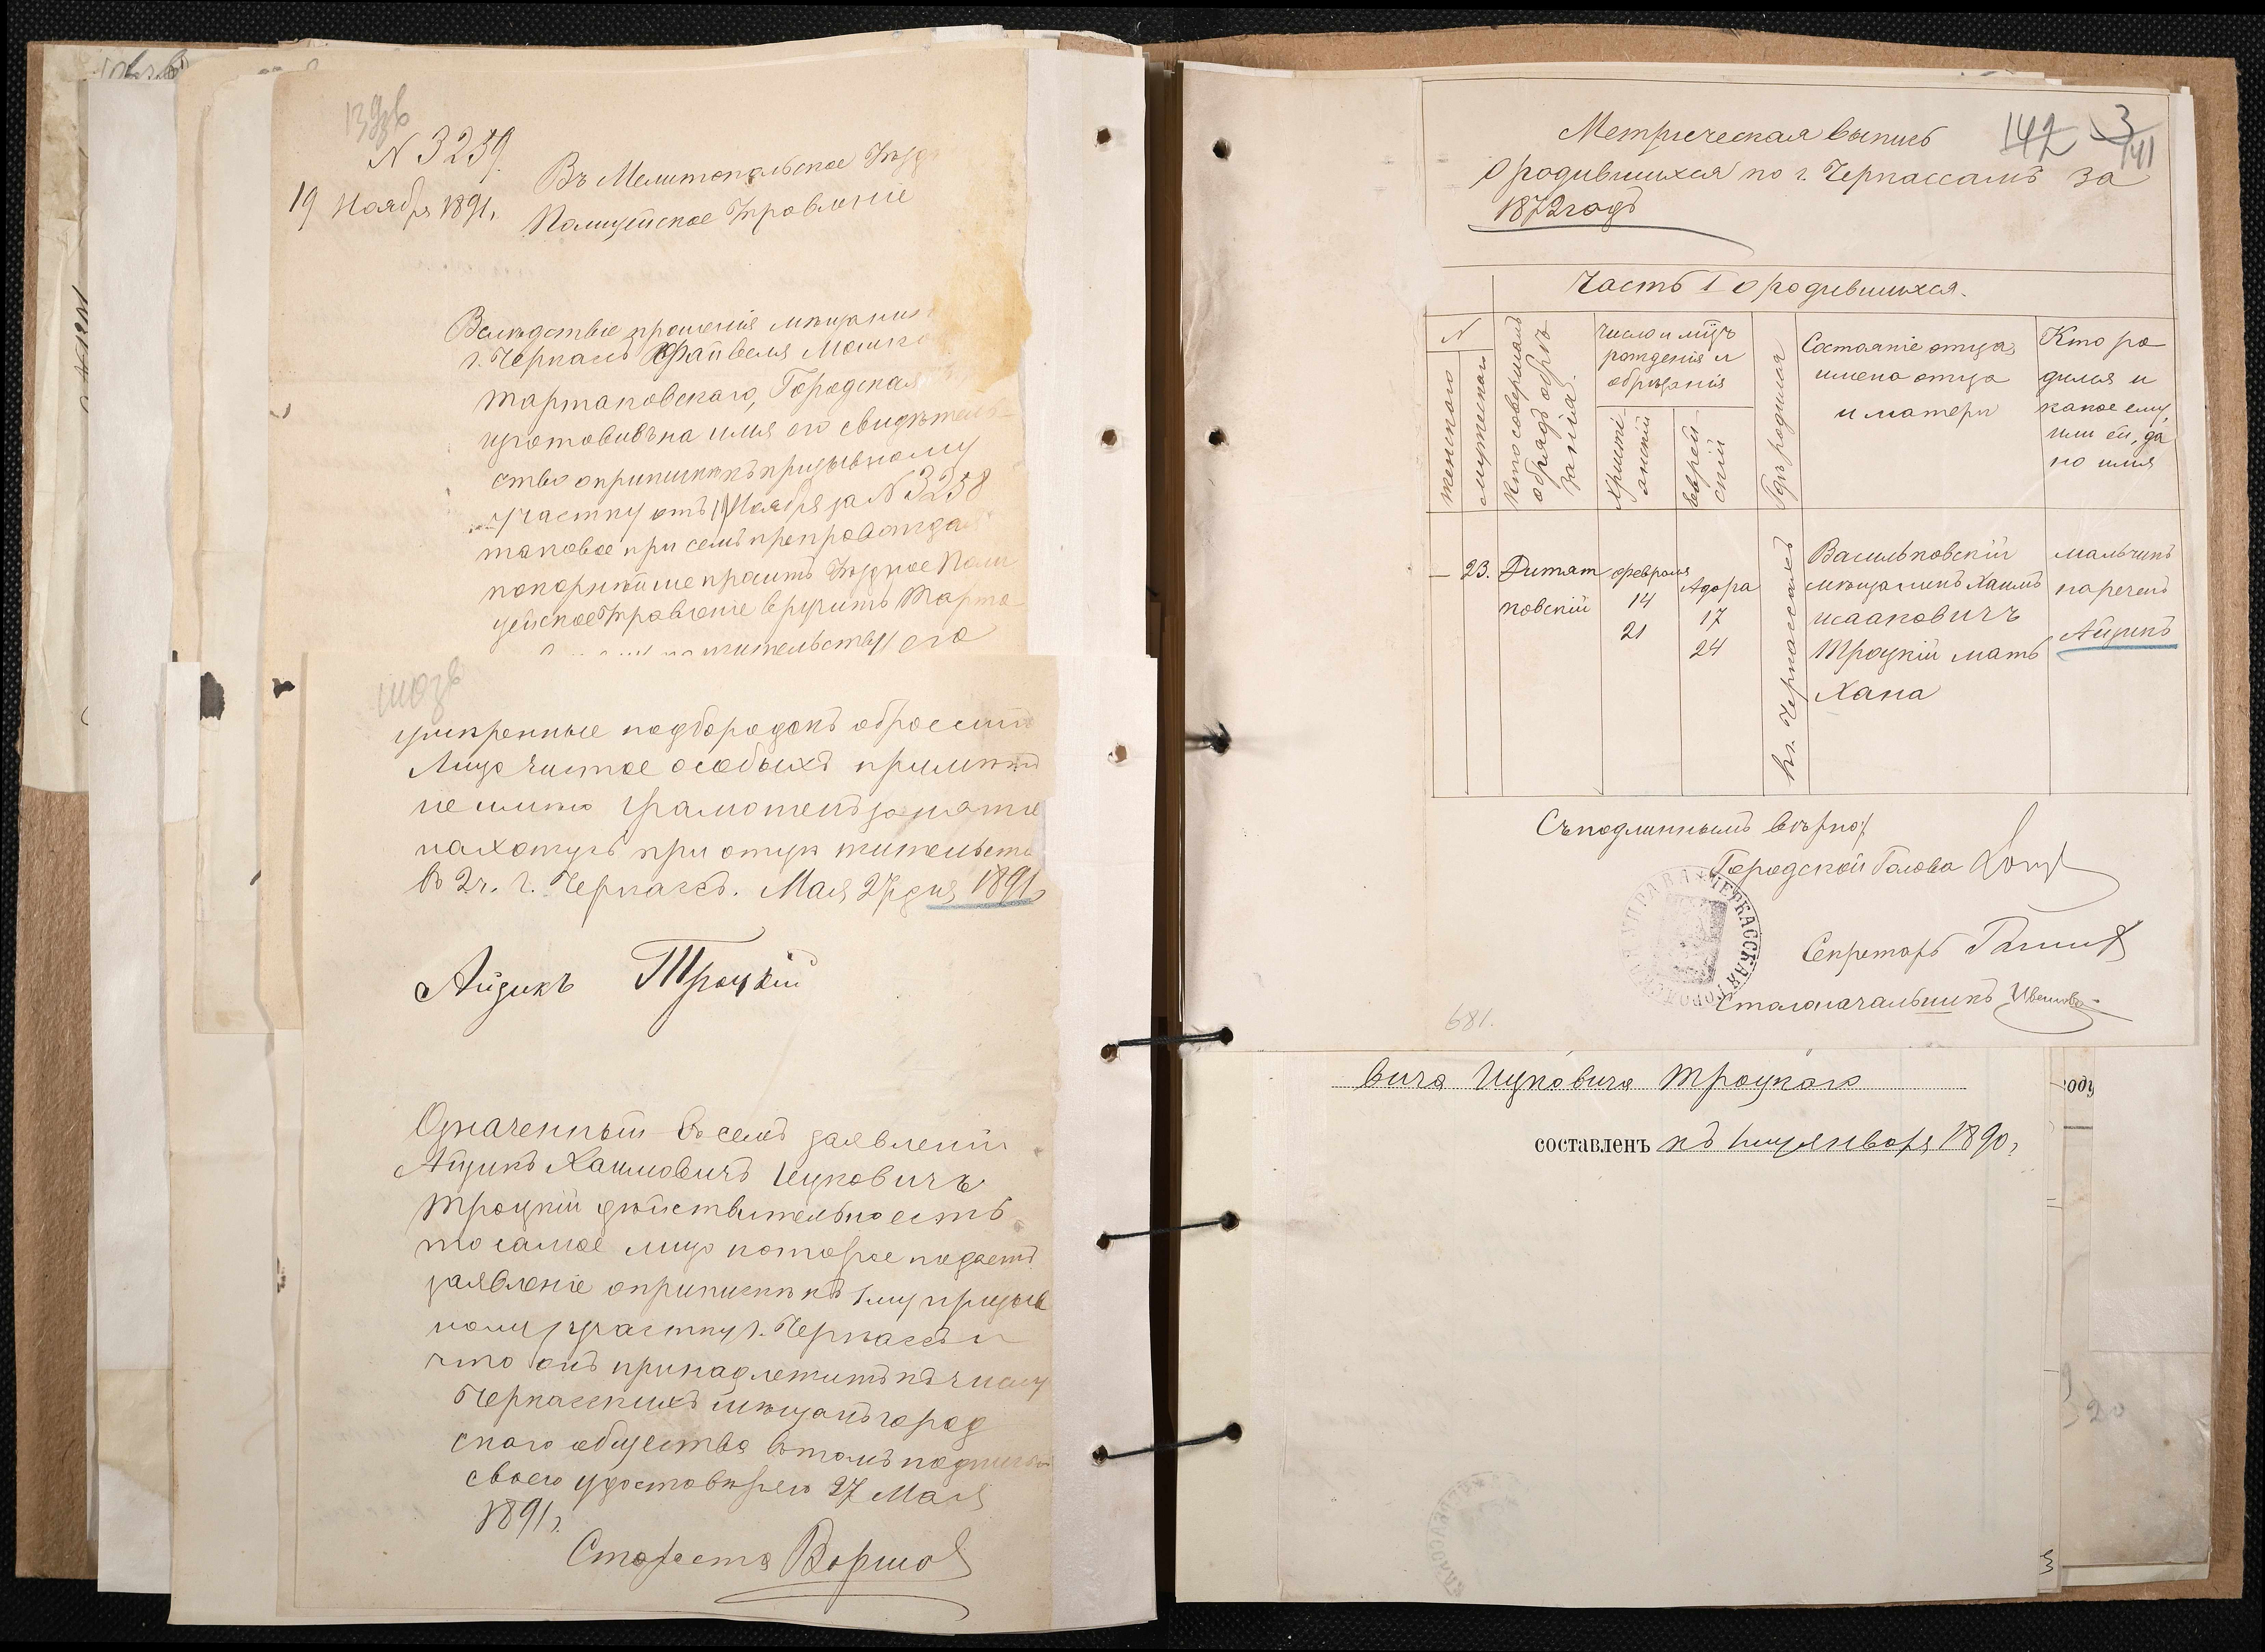 N 3259.
19 Ноября 1891 г.
Въ Мелитопольское
Полицейское Управленіе
Вслѣдствіе прошенія мѣщанина
г. Черкасъ Файвеля Мошко
Тартаковскаго, Городская
изготовивъ на имя его свидѣтель-
ство о припискѣ къ призывному
участку отъ 19 Ноября за N 3258
таковое при семъ препровождая
покорнѣйше проситъ Уѣздное Поли
цейское Управленіе вручить Тарта
жительству его
умѣренные подбородокъ обросшій
Лицо чистое особыхъ примѣтъ
не имѣю грамотенъ занятіе
нахожусь при отцѣ жительство
въ 2 ч. г. Черкассъ. Мая 27 дня 1891 г.
Айзикъ Троцкій
Означенный въ семъ заявленіи
Айзикъ Хаимовичъ Ицковичъ
Троцкій дѣйствительно есть
то самое лицо которое подаетъ
заявленіе о припискѣ къ 1му призыв
ному участку г. Черкассъ и
что онъ принадлежитъ къ числу
Черкасскихъ мѣщанъ город
скаго общества въ томъ подписью
своею удостовѣряю 27 Мая
1891 г.
Староста
142 3
141
Метрическая выпись
О родившихся по г. Черкассамъ за
1872 годъ
Часть I о родившихся.
N
женского
мужескаго
Кто совершалъ
обрядъ обрѣ
занія.
Число и мѣц
рожденія и
обрѣзанія
Христі-
анскій
Еврей
скій
Гдѣ родился
Состояніе отца,
имена отца
и матери
Кто ро
дился и
какое ему,
или ей, да
но имя
— 23. Дитят
ковскій
Февраля
14
21
Адара
17
24
въ г. Черкассахъ
Васильковскій
мѣщанинъ Хаимъ
Исааковичъ
Троцкій мать
Хана
мальчикъ
нареченъ
Айзикъ
Съ подлиннымъ вѣрно:
Городской Голова
Секретарь
Столоначальникъ
ЧЕРКАССКАЯ ГОРОДСКАЯ УПРАВА
681.
вича Ицковича Троцкаго
составленъ къ 1му января 1890 г.
оду
320